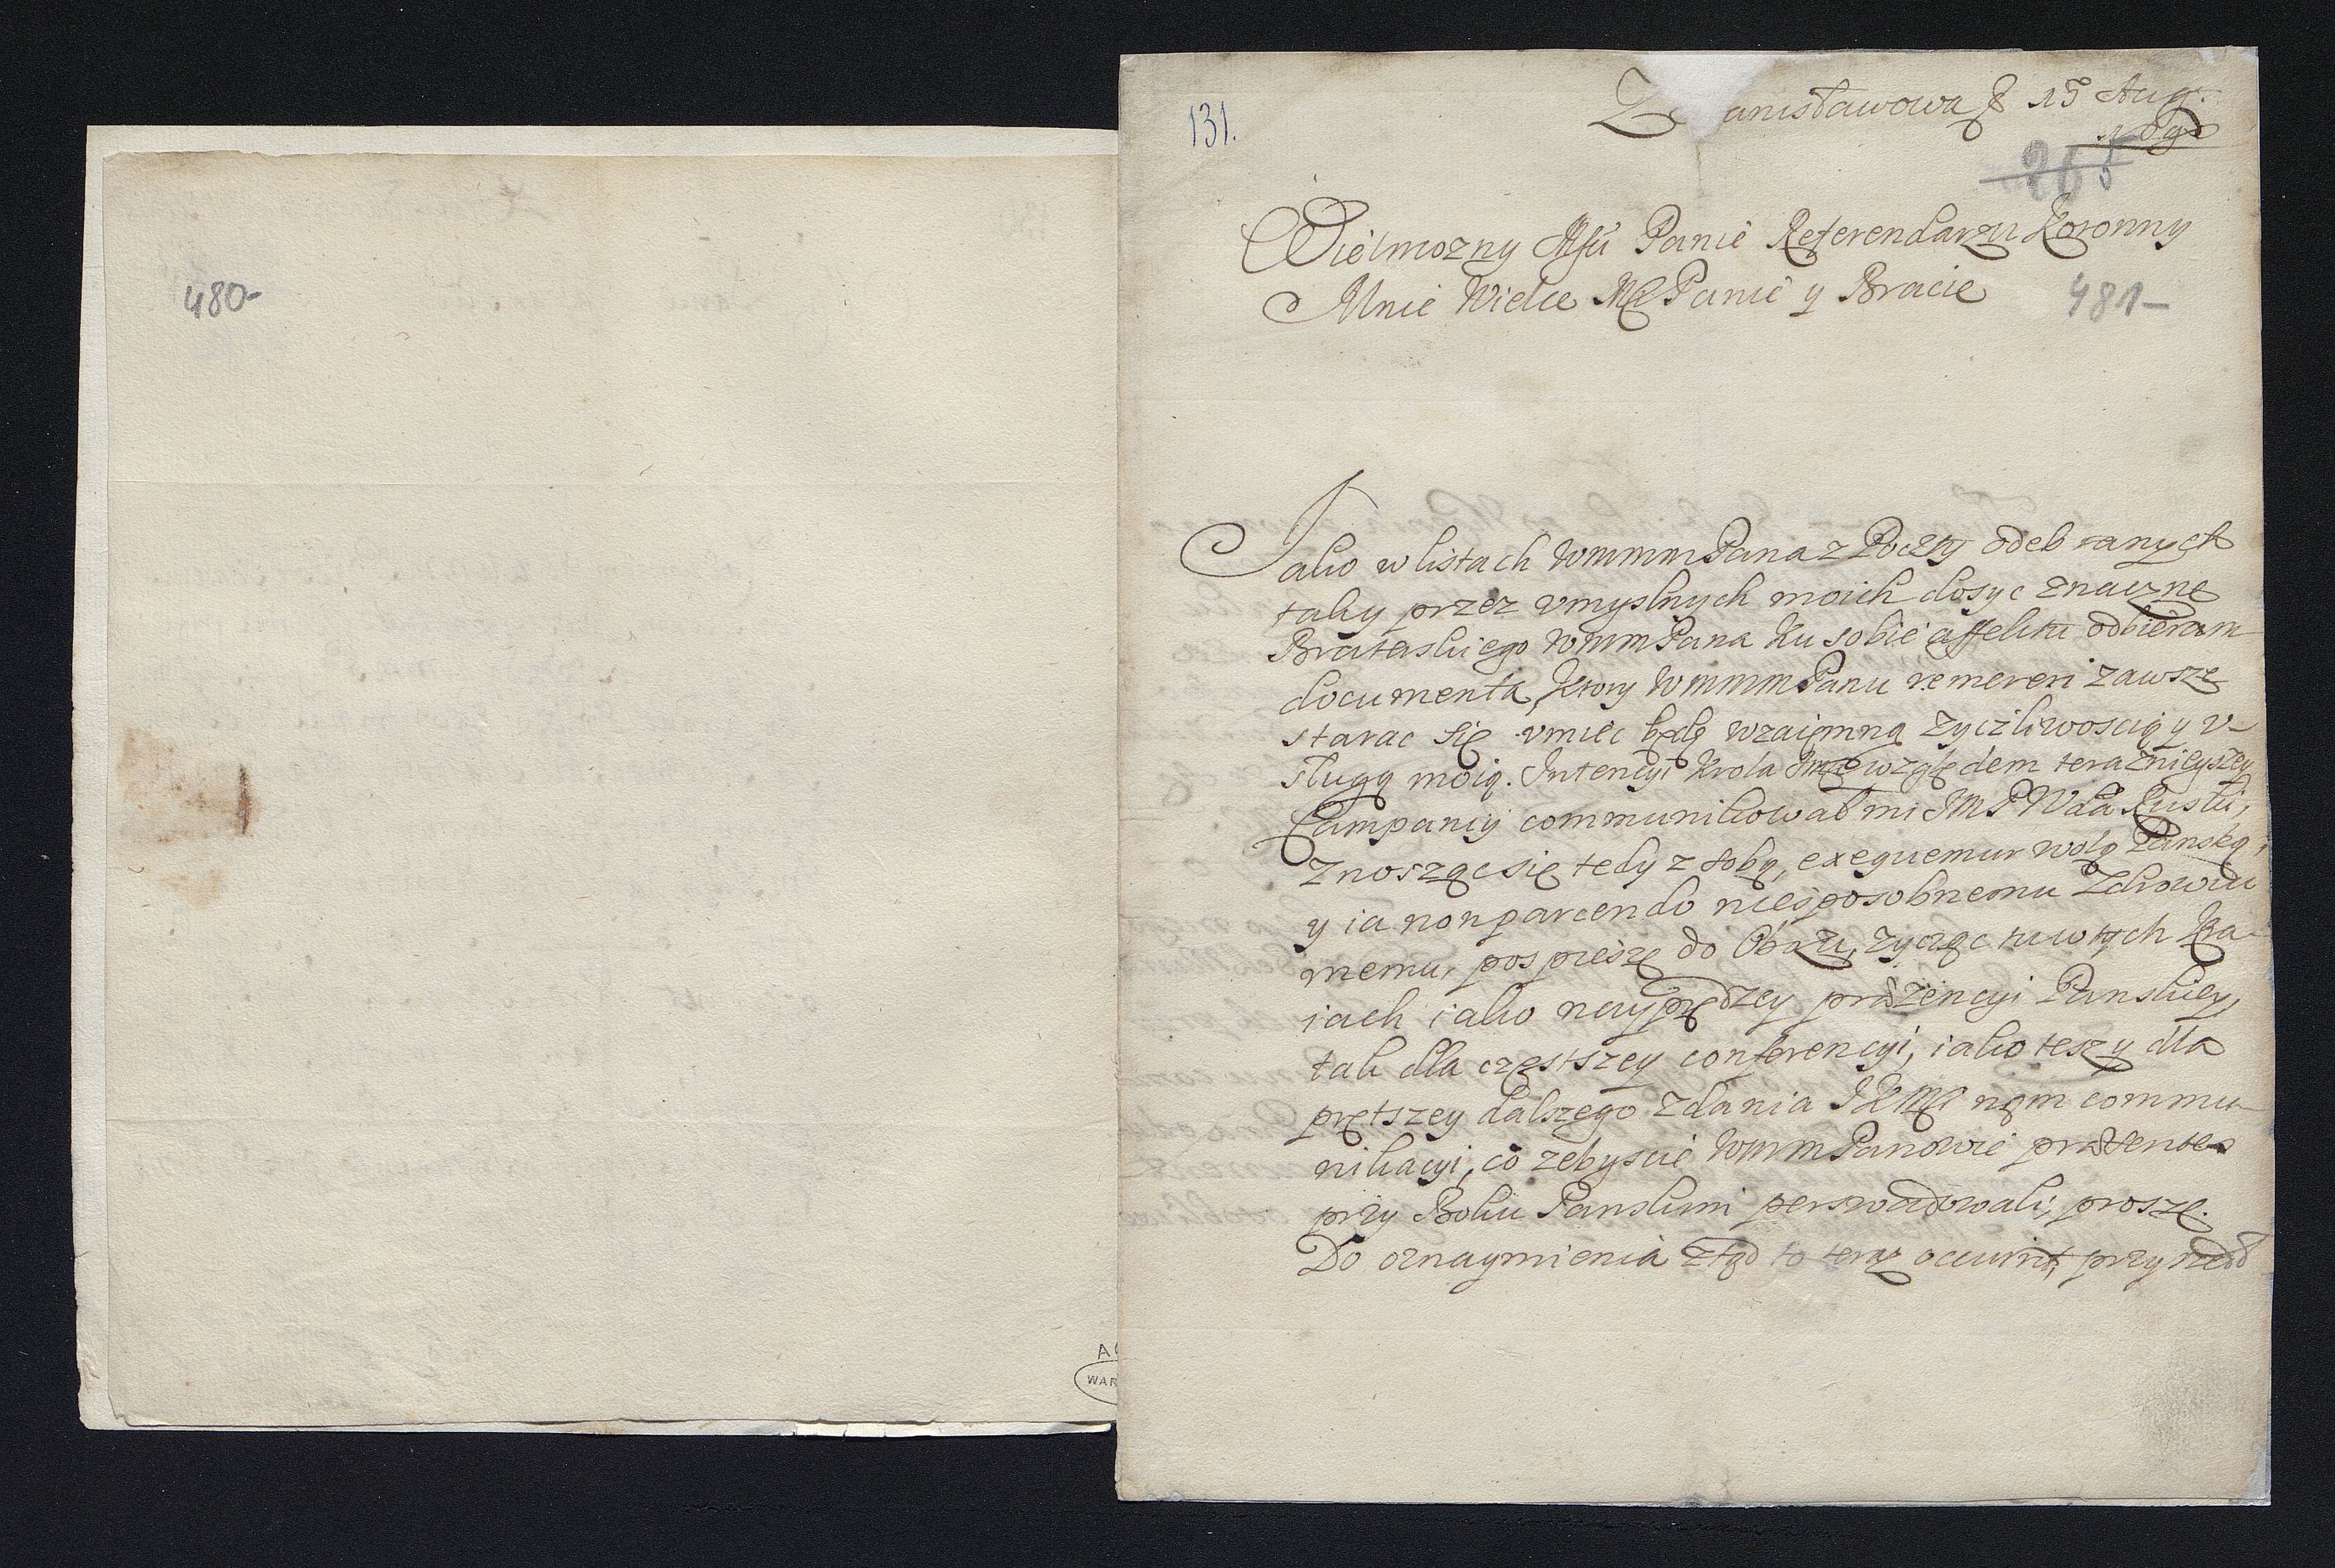 480-
131.
Ze anisławowa d 15 Aug.
265
Wielmozny Msci Panie Referendarzu Koronny
Mnie Wielce Mci Panie y Bracie
481-
Jako w listach WmmmPana z Poczty odebranych
taky przez vmyslnych moich dosyc znaczne
Braterskiego WmmPana Ku sobie affektu odbieram
documenta, Ktory WmmmPanu remereri zawsze
starac się vmiec będę wzaiemną zyczliwoscią y v-
sługą moią. Intencyi Krola Jmci względem teraznieyszey
Campanij communikował mi JMP Wda Ruski,
Znosząc się tedy z sobą, exequemur wolą Panską,
y ia non parcendo niesposobnemu Zdrowiu
memu, pospieszę do Obozu, zycząc tu w tych Kra-
iach iako nayprędzey præzencyi Panskiey,
tak dla częstszey conferencyi, iako tesz y dla
prętszey dalszego zdania JKMci nąm commu-
nikacyi, co zebyscie WmmPanowie præsentes
przy Boku Panskim perswadowali, proszę.
Do oznaymienia ztąd to teraz occurrit, przy
A
WAR